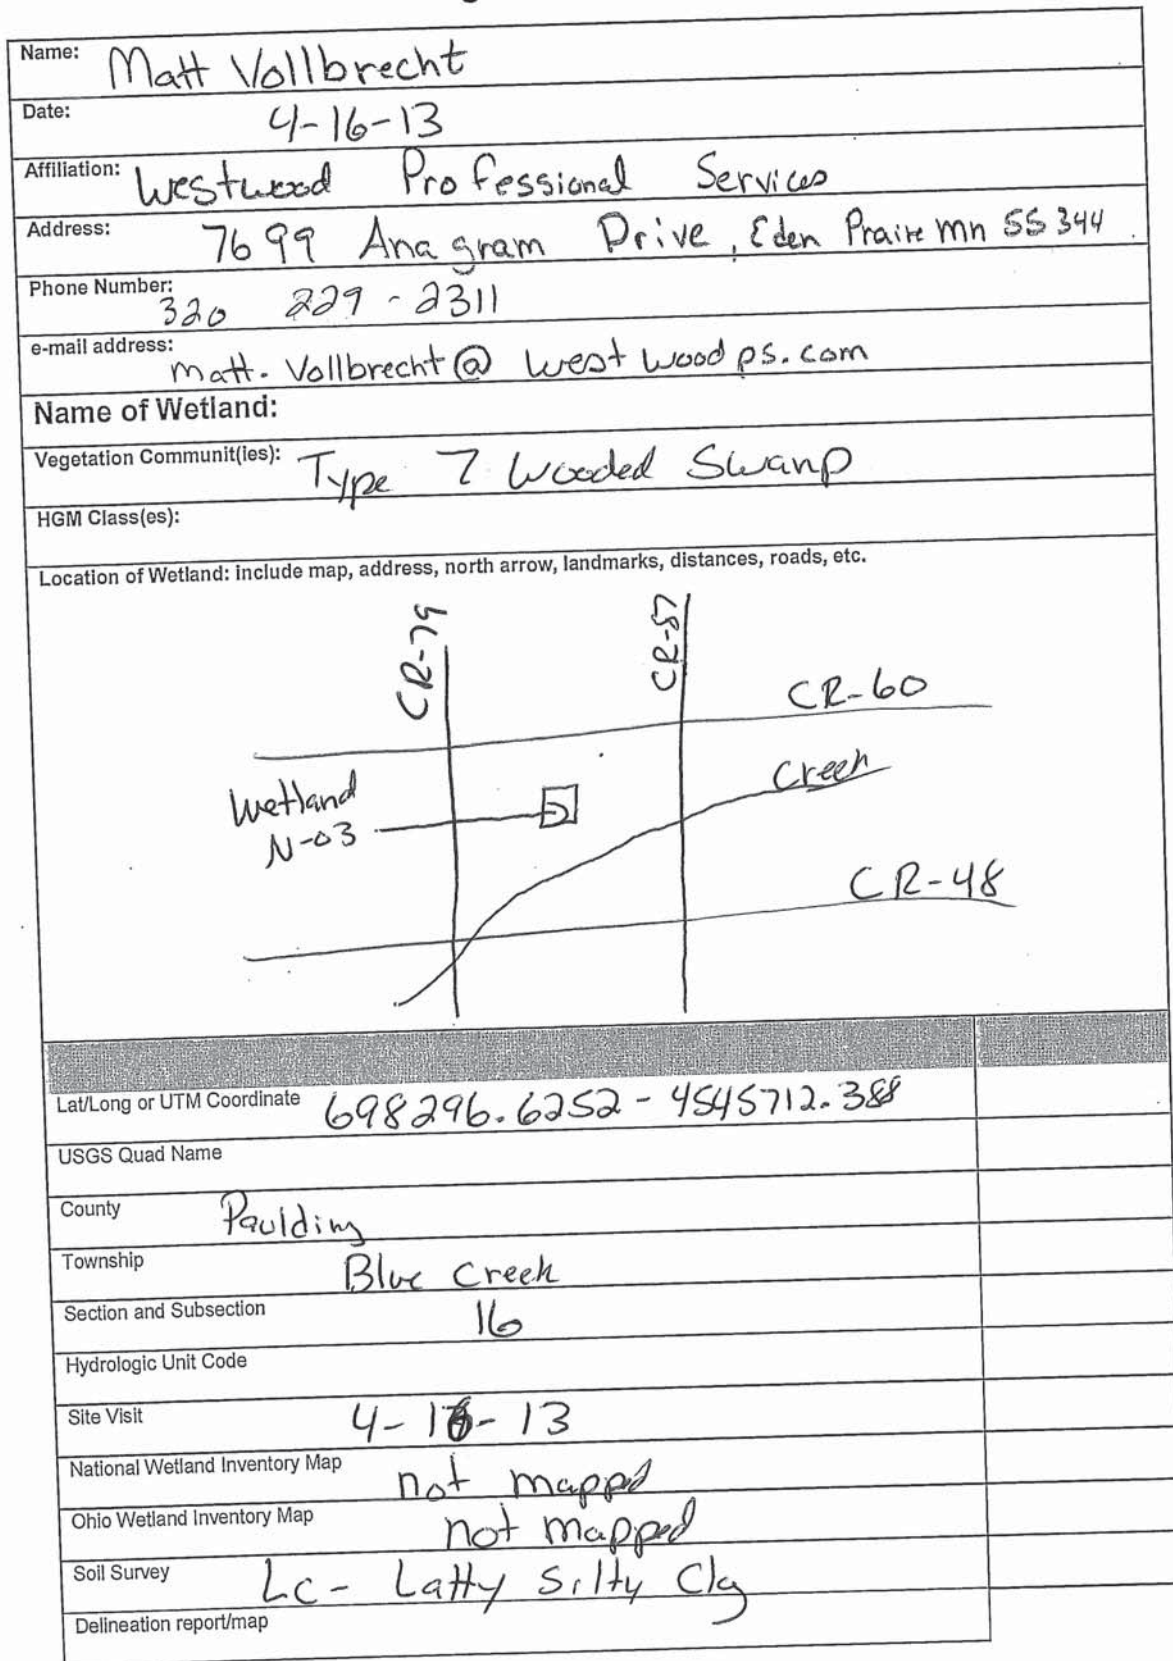 Name: Matt Vollbrecht
Date: 4-16-13
Affiliation: Westwood Professional Services
Address: 7699 Anagram Drive, Eden Prairie mn 55344
Phone Number: 320 229-2311
e-mail address: matt.Vollbrecht@westwoodps.com
Name of Wetland:
Vegetation Communit(ies): Type 7 Wooded Swamp
HGM Class(es):
Location of Wetland: include map, address, north arrow, landmarks, distances, roads, etc.
CR-79
CR-87
CR-60
Creek
Wetland
N-03
CR-48
Lat/Long or UTM Coordinate 698296.6252 - 4545712.388
USGS Quad Name
County Paulding
Township Blue Creek
Section and Subsection 16
Hydrologic Unit Code
Site Visit 4-16-13
National Wetland Inventory Map not mapped
Ohio Wetland Inventory Map not mapped
Soil Survey Lc - Latty Silty Clay
Delineation report/map